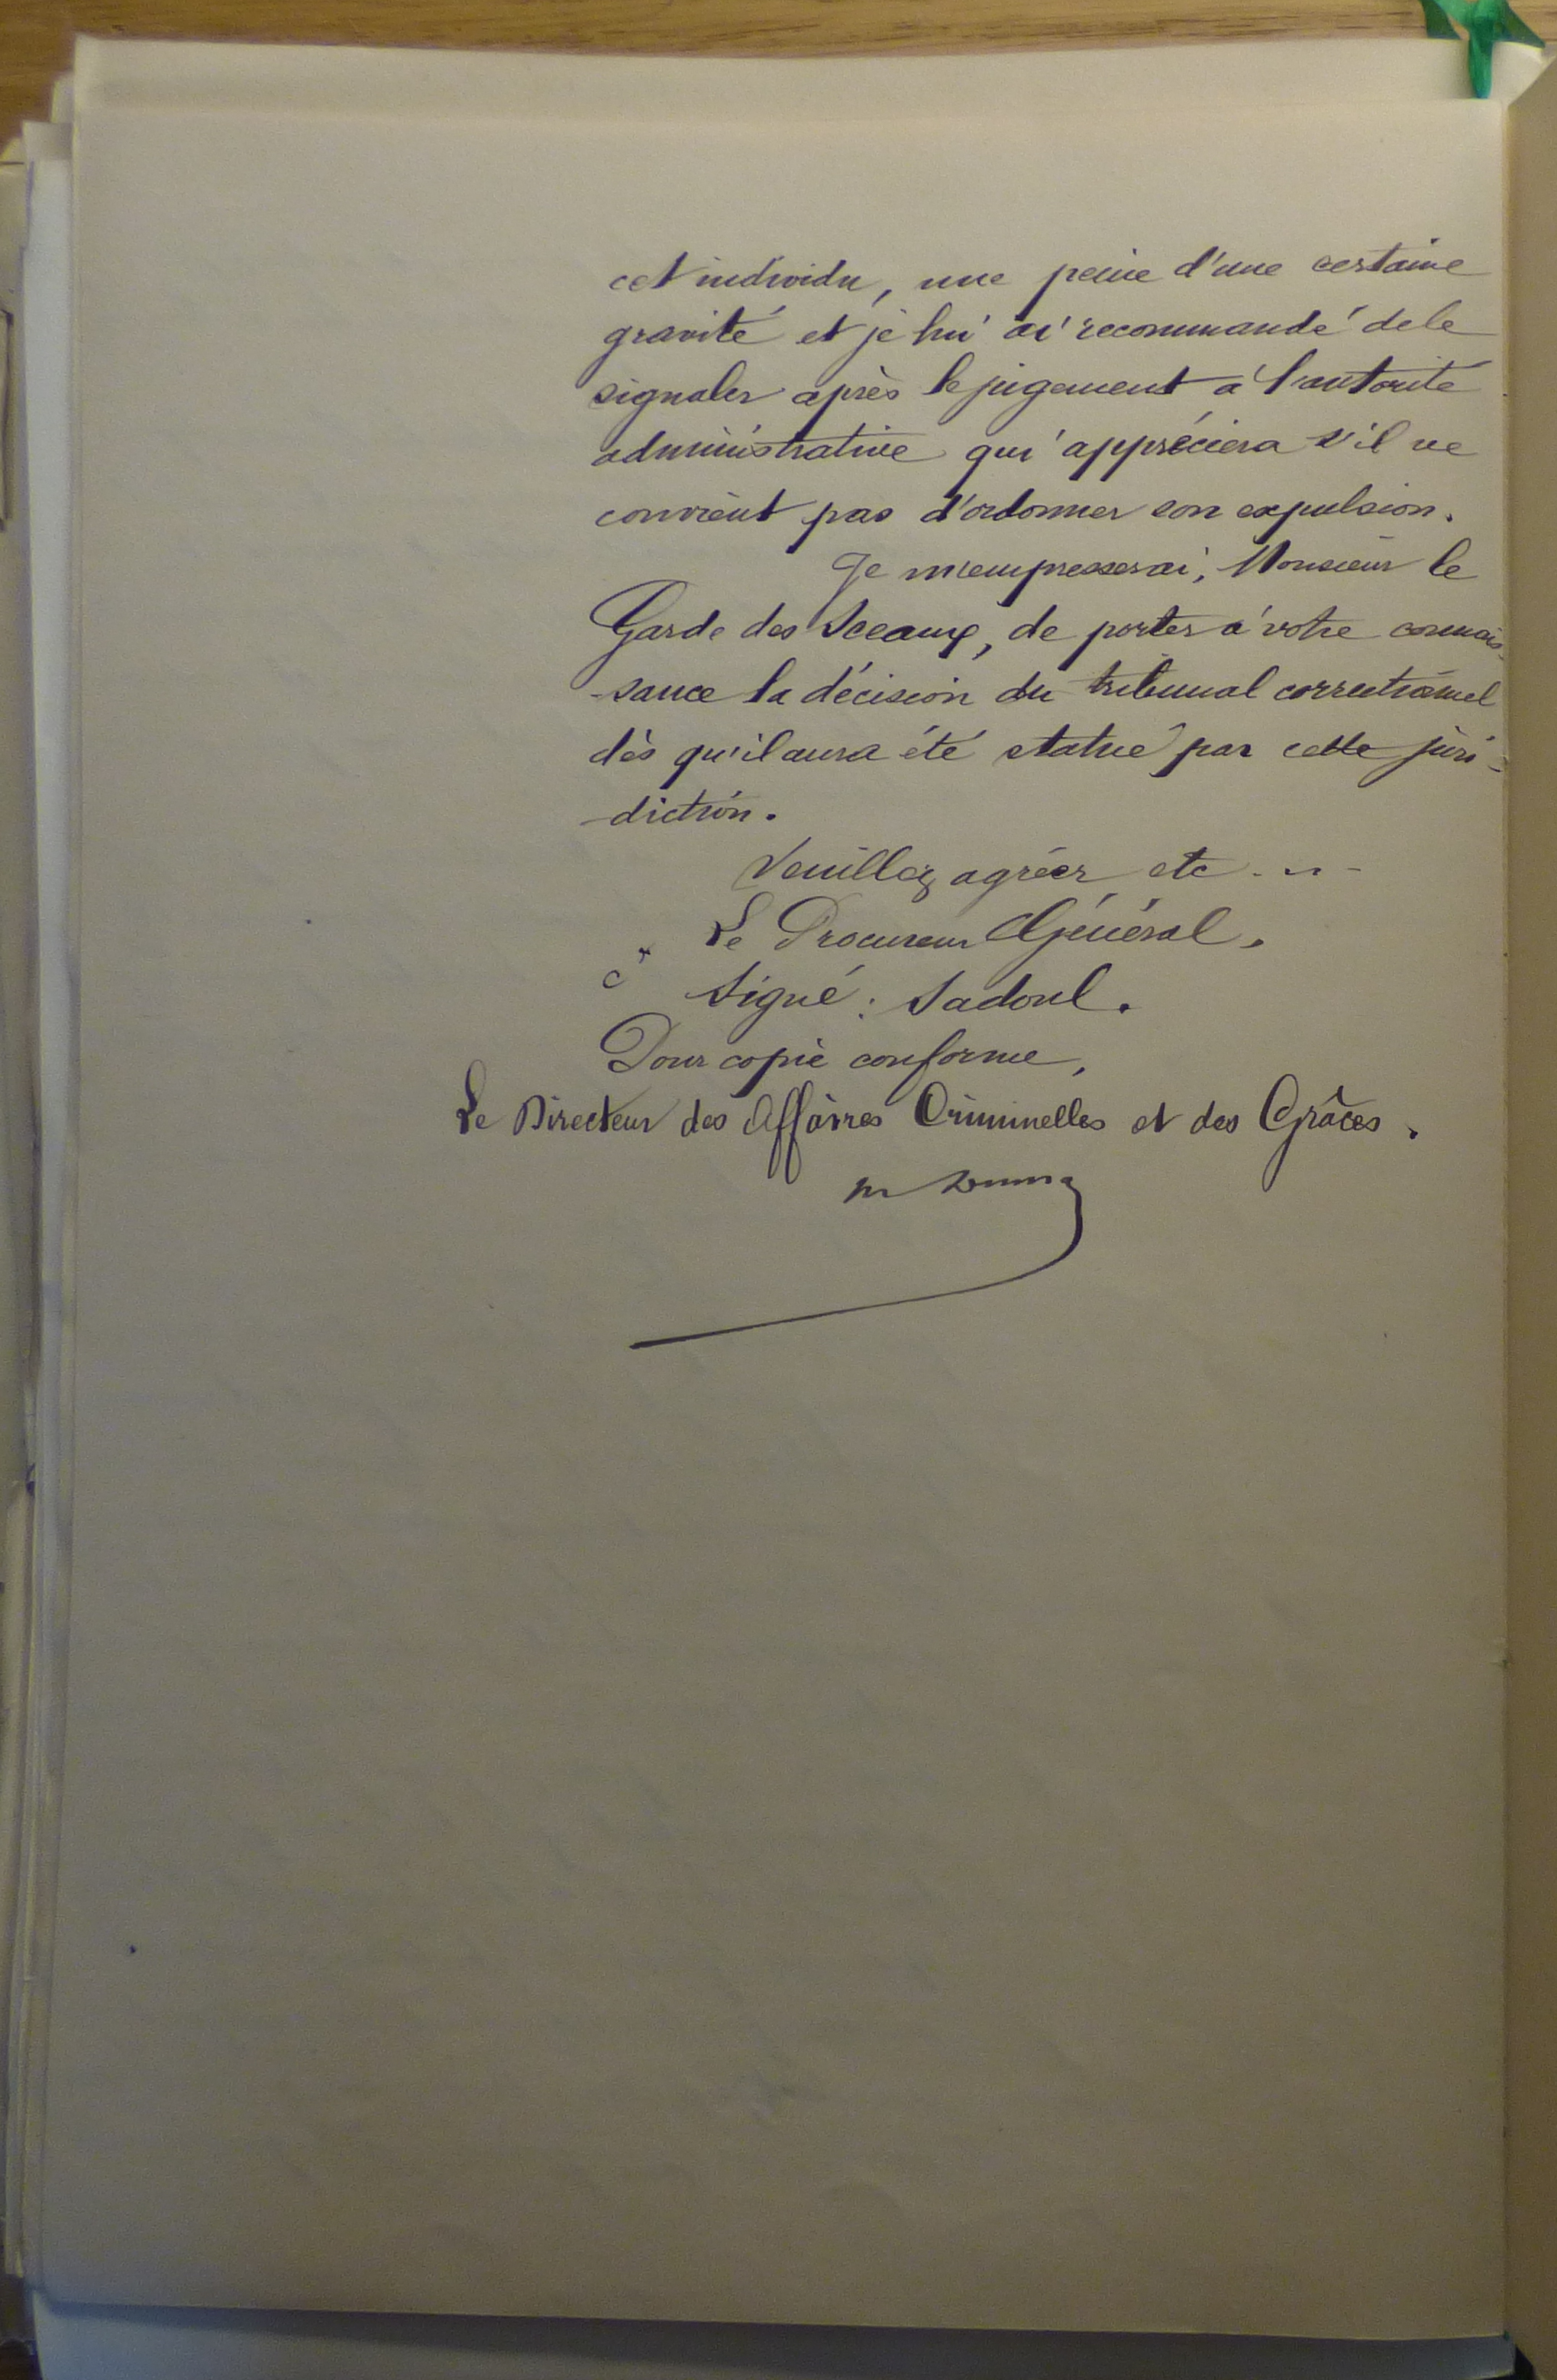 cet individu, une peine d'une certaine
gravité et je lui ai recommandé de le
signaler après le jugement à l'autorité
administrative qui appréciera s'il ne
convient pas d'ordonner son expulsion.
Je m'empresserai, Monsieur le
Garde des Sceaux, de porter à votre connais-
-sance la décision du tribunal correctionnel
dès qu'il aura été statué par cette juri-
-diction.
Veuillez agréer etc....
Le Procureur Général.
Signé : Sadoul.
Pour copie conforme,
Le Directeur des Affaires Criminelles et des Grâces.